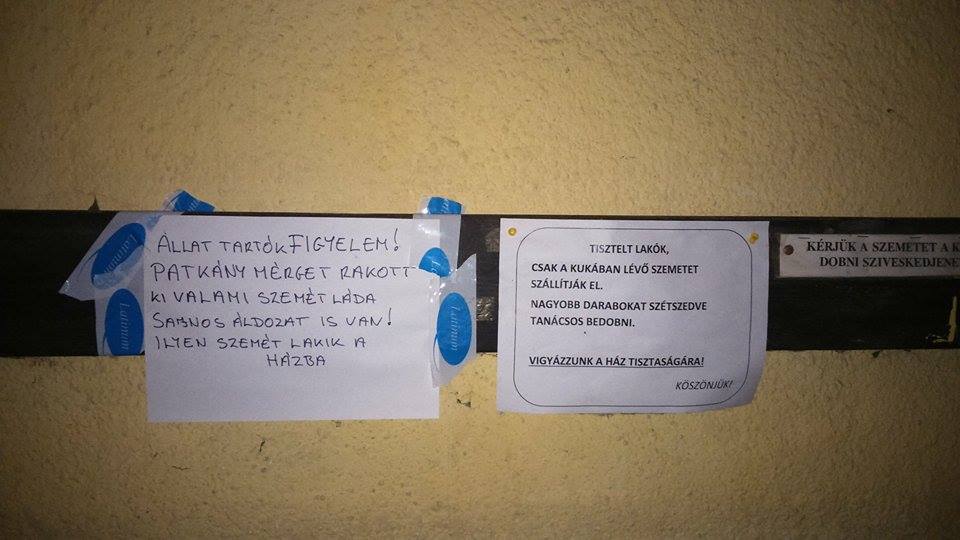 ÁLLAT TARTÓK FIGYELEM!
PATKÁNY MÉRGET RAKOTT
KI VALAMI SZEMÉT LÁDA
SAJNOS ÁLDOZAT IS VAN!
ILYEN SZEMÉT LAKIK A
HÁZBA
TISZTELT LAKÓK,
CSAK A KUKÁBAN LÉVŐ SZEMETET
SZÁLLÍTJÁK EL.
NAGYOBB DARABOKAT SZÉTSZEDVE
TANÁCSOS BEDOBNI.
VIGYÁZZUNK A HÁZ TISZTASÁGÁRA!
KÖSZÖNJÜK!
KÉRJÜK A SZEMETET A K
DOBNI SZIVESKEDJENE
Latinum
Latinum
Latinum